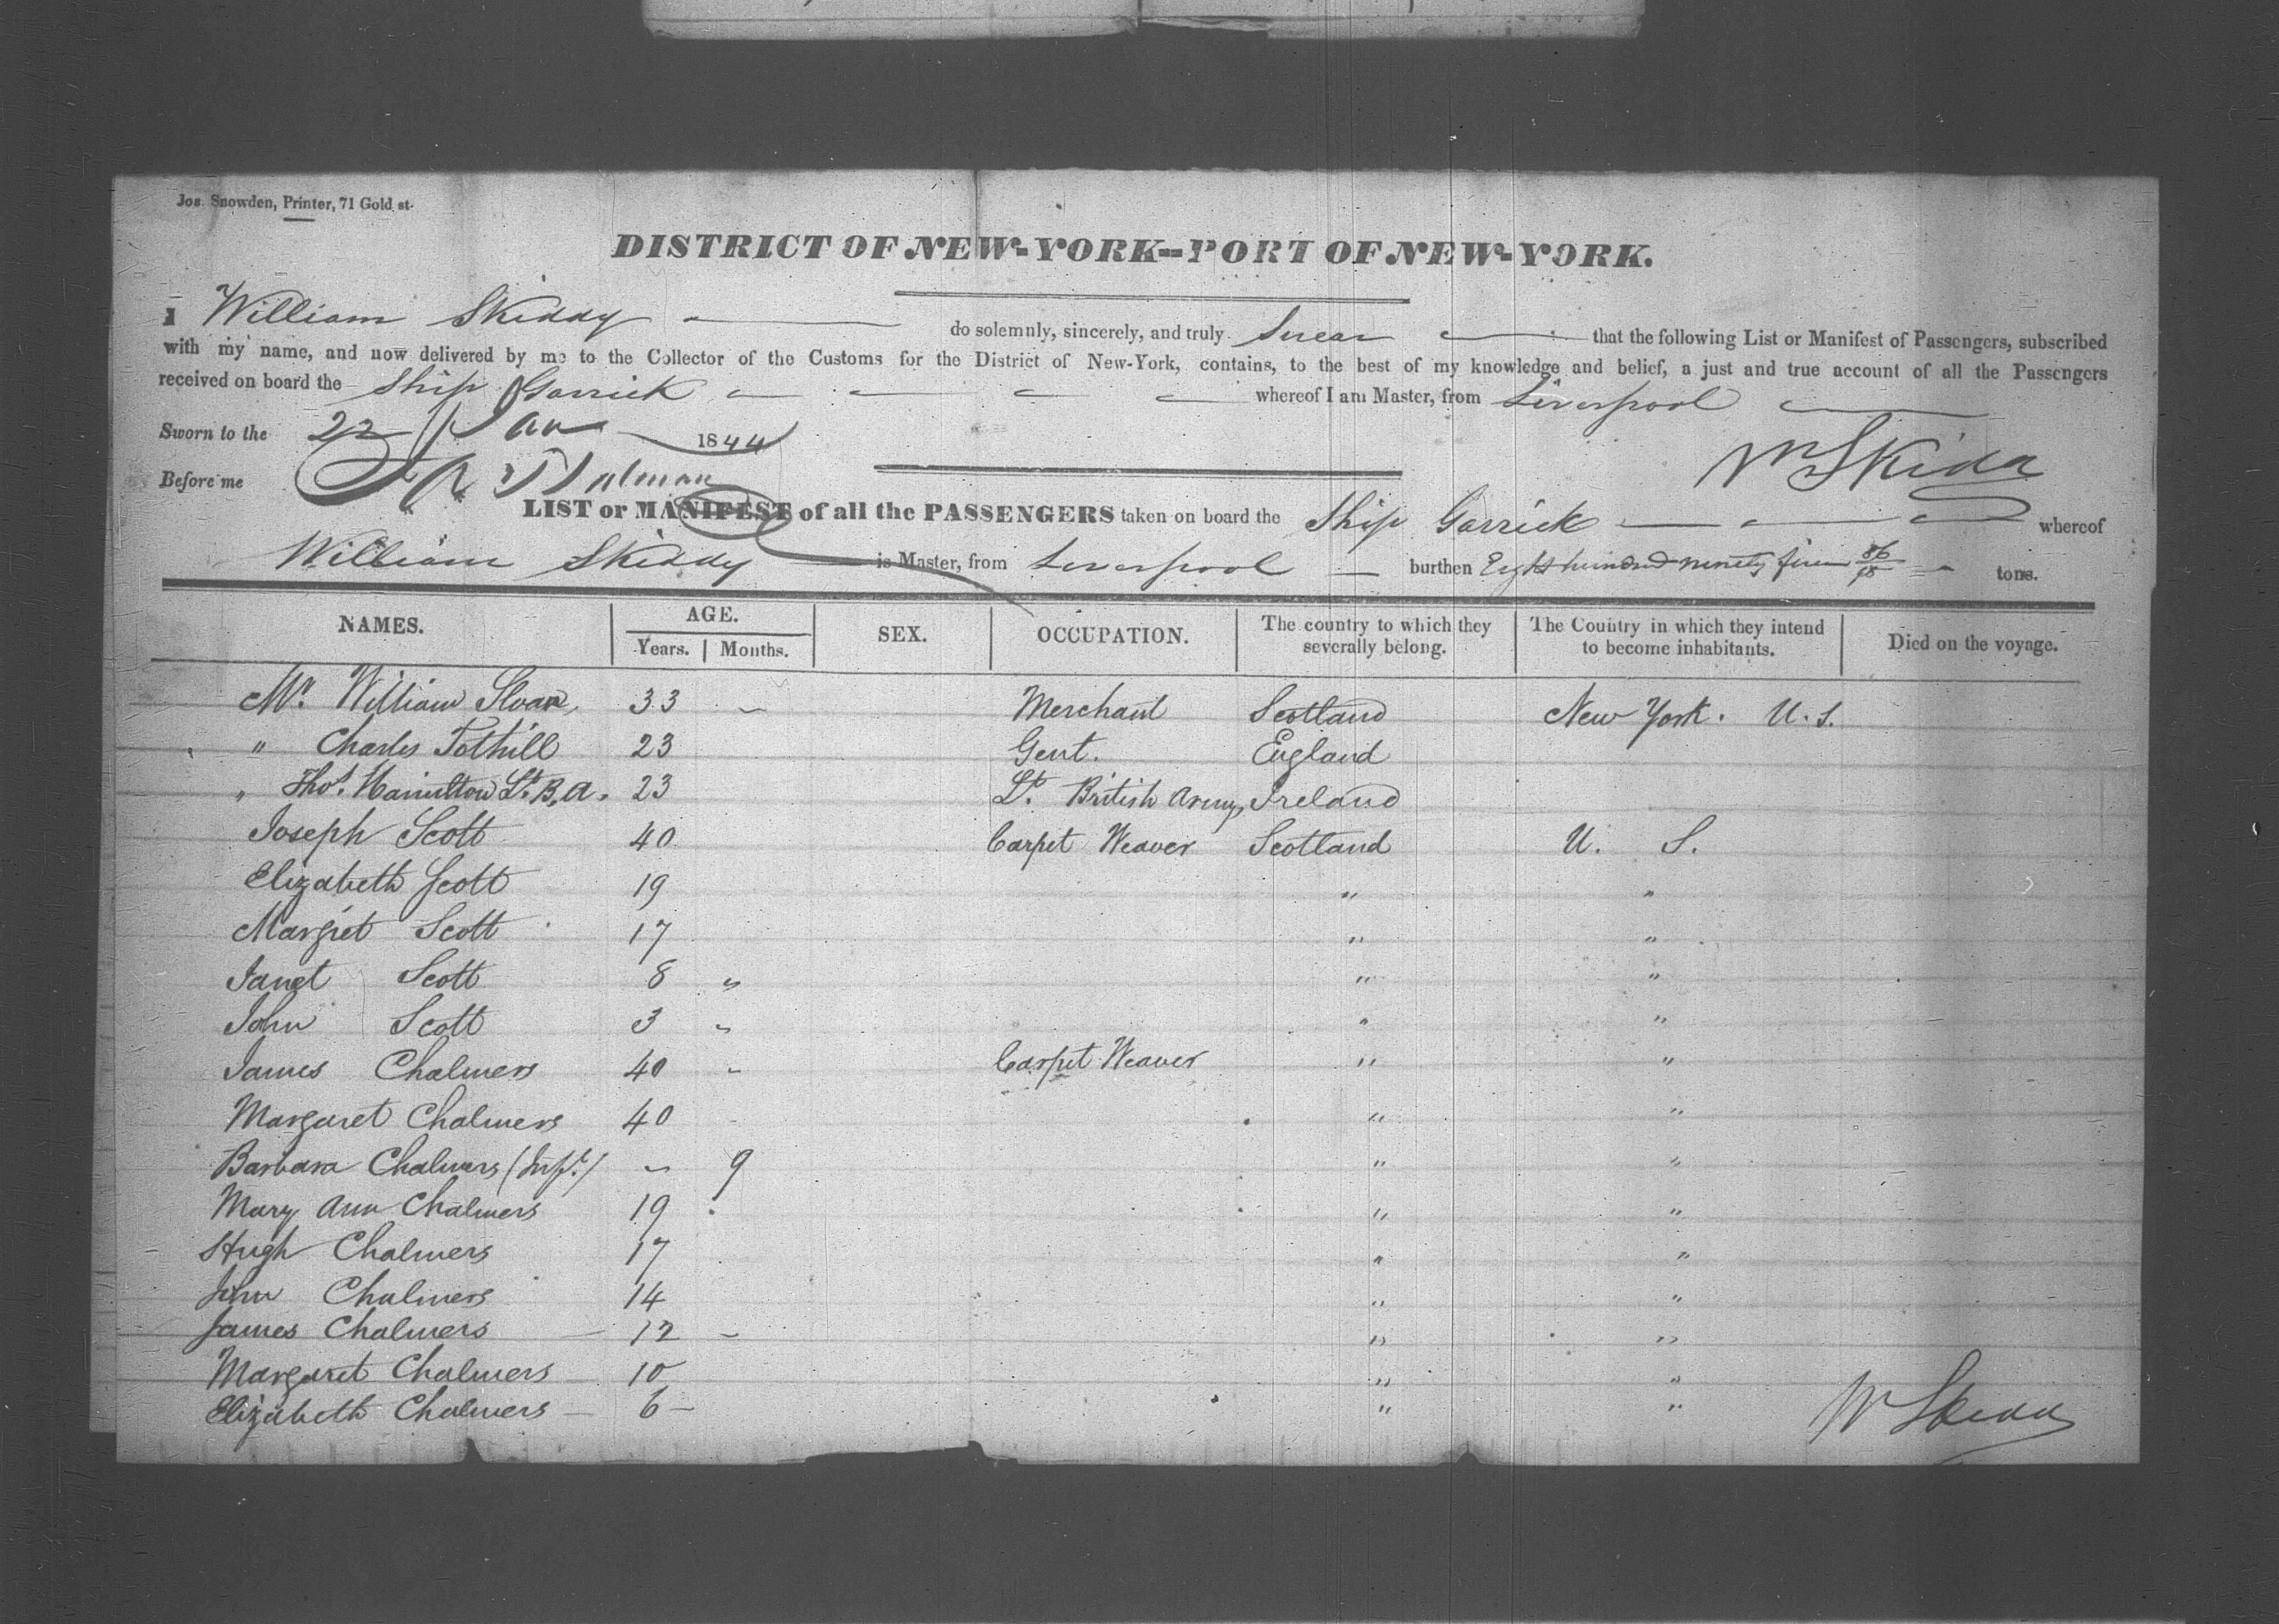 Jos. Snowden, Printer, 71 Gold st.
DISTRICT OF NEW-YORK--PORT OF NEW-YORK.
I William Skiddy do solemnly, sincerely, and truly Swear that the following List or Manifest of Passengers, subscribed
with my name, and now delivered by me to the Collector of the Customs for the District of New-York, contains, to the best of my knowledge and belief, a just and true account of all the Passengers
received on board the Ship Garrick whereof I am Master, from Liverpool
Sworn to the 22 Jan 1844
W Skiddy
Before me
LIST or MANIFEST of all the PASSENGERS taken on board the Ship Garrick whereof
William Skiddy is Master, from Liverpool burthen Eight hundred ninety five tons.
NAMES. AGE. SEX. OCCUPATION. The country to which they severally belong. The Country in which they intend to become inhabitants. Died on the voyage.
Years. Months.
Mr. William Sloan, 33 - Merchant Scotland New York. U.S.
" Charles Tothill 23 Gent. England
" Thos. Hamilton Lt. B.A. 23 Lt. British Army, Ireland
Joseph Scott 40 Carpet Weaver Scotland U. S.
Elizabeth Scott 19 " "
Margret Scott 17 " "
Janet Scott 8 " " "
John Scott 3 " " "
James Chalmers 40 - Carpet Weaver " "
Margaret Chalmers 40 " "
Barbara Chalmers (Inft.) - 9 " "
Mary Ann Chalmers 19 " "
Hugh Chalmers 17 " "
John Chalmers 14 " "
James Chalmers 12 - " "
Margaret Chalmers 10 " "
Elizabeth Chalmers 6 - " "
W Skiddy